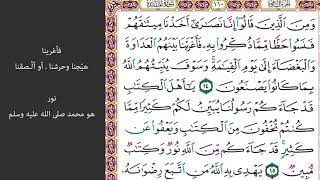 ١١٠
وَمِنَ ٱلَّذِينَ قَالُوٓا۟ إِنَّا نَصَٰرَىٰٓ أَخَذْنَا مِيثَٰقَهُمْ
فَنَسُوا۟ حَظًّا مِّمَّا ذُكِّرُوا۟ بِهِۦ فَأَغْرَيْنَا بَيْنَهُمُ ٱلْعَدَاوَةَ
وَٱلْبَغْضَآءَ إِلَىٰ يَوْمِ ٱلْقِيَٰمَةِ وَسَوْفَ يُنَبِّئُهُمُ ٱللَّهُ
بِمَا كَانُوا۟ يَصْنَعُونَ ١٤ يَٰٓأَهْلَ ٱلْكِتَٰبِ
قَدْ جَآءَكُمْ رَسُولُنَا يُبَيِّنُ لَكُمْ كَثِيرًا مِّمَّا
كُنتُمْ تُخْفُونَ مِنَ ٱلْكِتَٰبِ وَيَعْفُوا۟ عَن
كَثِيرٍ قَدْ جَآءَكُم مِّنَ ٱللَّهِ نُورٌ وَكِتَٰبٌ
مُّبِينٌ ١٥ يَهْدِى بِهِ ٱللَّهُ مَنِ ٱتَّبَعَ رِضْوَٰنَهُۥ
فأغرينا
هيّجنا وحرشنا ، أو ألصقنا
نور
هو محمد صلى الله عليه وسلم